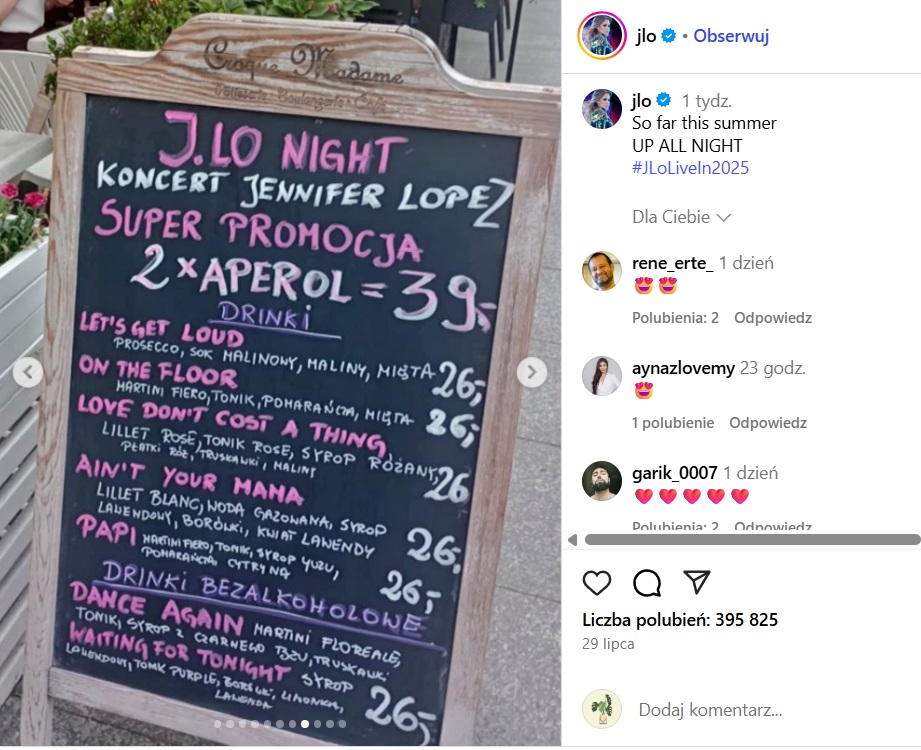 Croque Madame
Patisserie · Boulangerie · Café
J.LO NIGHT
KONCERT JENNIFER LOPEZ
SUPER PROMOCJA
2 x APEROL = 39,-
DRINKI
LET'S GET LOUD
PROSECCO, SOK MALINOWY, MALINY, MIĘTA 26,-
ON THE FLOOR
MARTINI FIERO, TONIK, POMARAŃCZA, MIĘTA 26,-
LOVE DON'T COST A THING
LILLET ROSE, TONIK ROSE, SYROP RÓŻANY,
PŁATKI RÓŻ, TRUSKAWKI, MALINY 26
AIN'T YOUR MAMA
LILLET BLANC, WODA GAZOWANA, SYROP
LAWENDOWY, BORÓWKI, KWIAT LAWENDY 26,-
PAPI MARTINI FIERO, TONIK, SYROP YUZU,
POMARAŃCZA, CYTRYNA 26,-
DRINKI BEZALKOHOLOWE
DANCE AGAIN MARTINI FLOREALE,
TONIK, SYROP Z CZARNEGO BZU, TRUSKAWKI
WAITING FOR TONIGHT SYROP
LAWENDOWY, TONIK PURPLE, BORÓWKI, LIMONKA,
LAWENDA 26,-
jlo • Obserwuj
jlo 1 tydz.
So far this summer
UP ALL NIGHT
#JLoLiveIn2025
Dla Ciebie
rene_erte_ 1 dzień
😍😍
Polubienia: 2 Odpowiedz
aynazlovemy 23 godz.
😍
1 polubienie Odpowiedz
garik_0007 1 dzień
❤️❤️❤️❤️❤️
Polubienia: 2 Odpowiedz
Liczba polubień: 395 825
29 lipca
Dodaj komentarz...